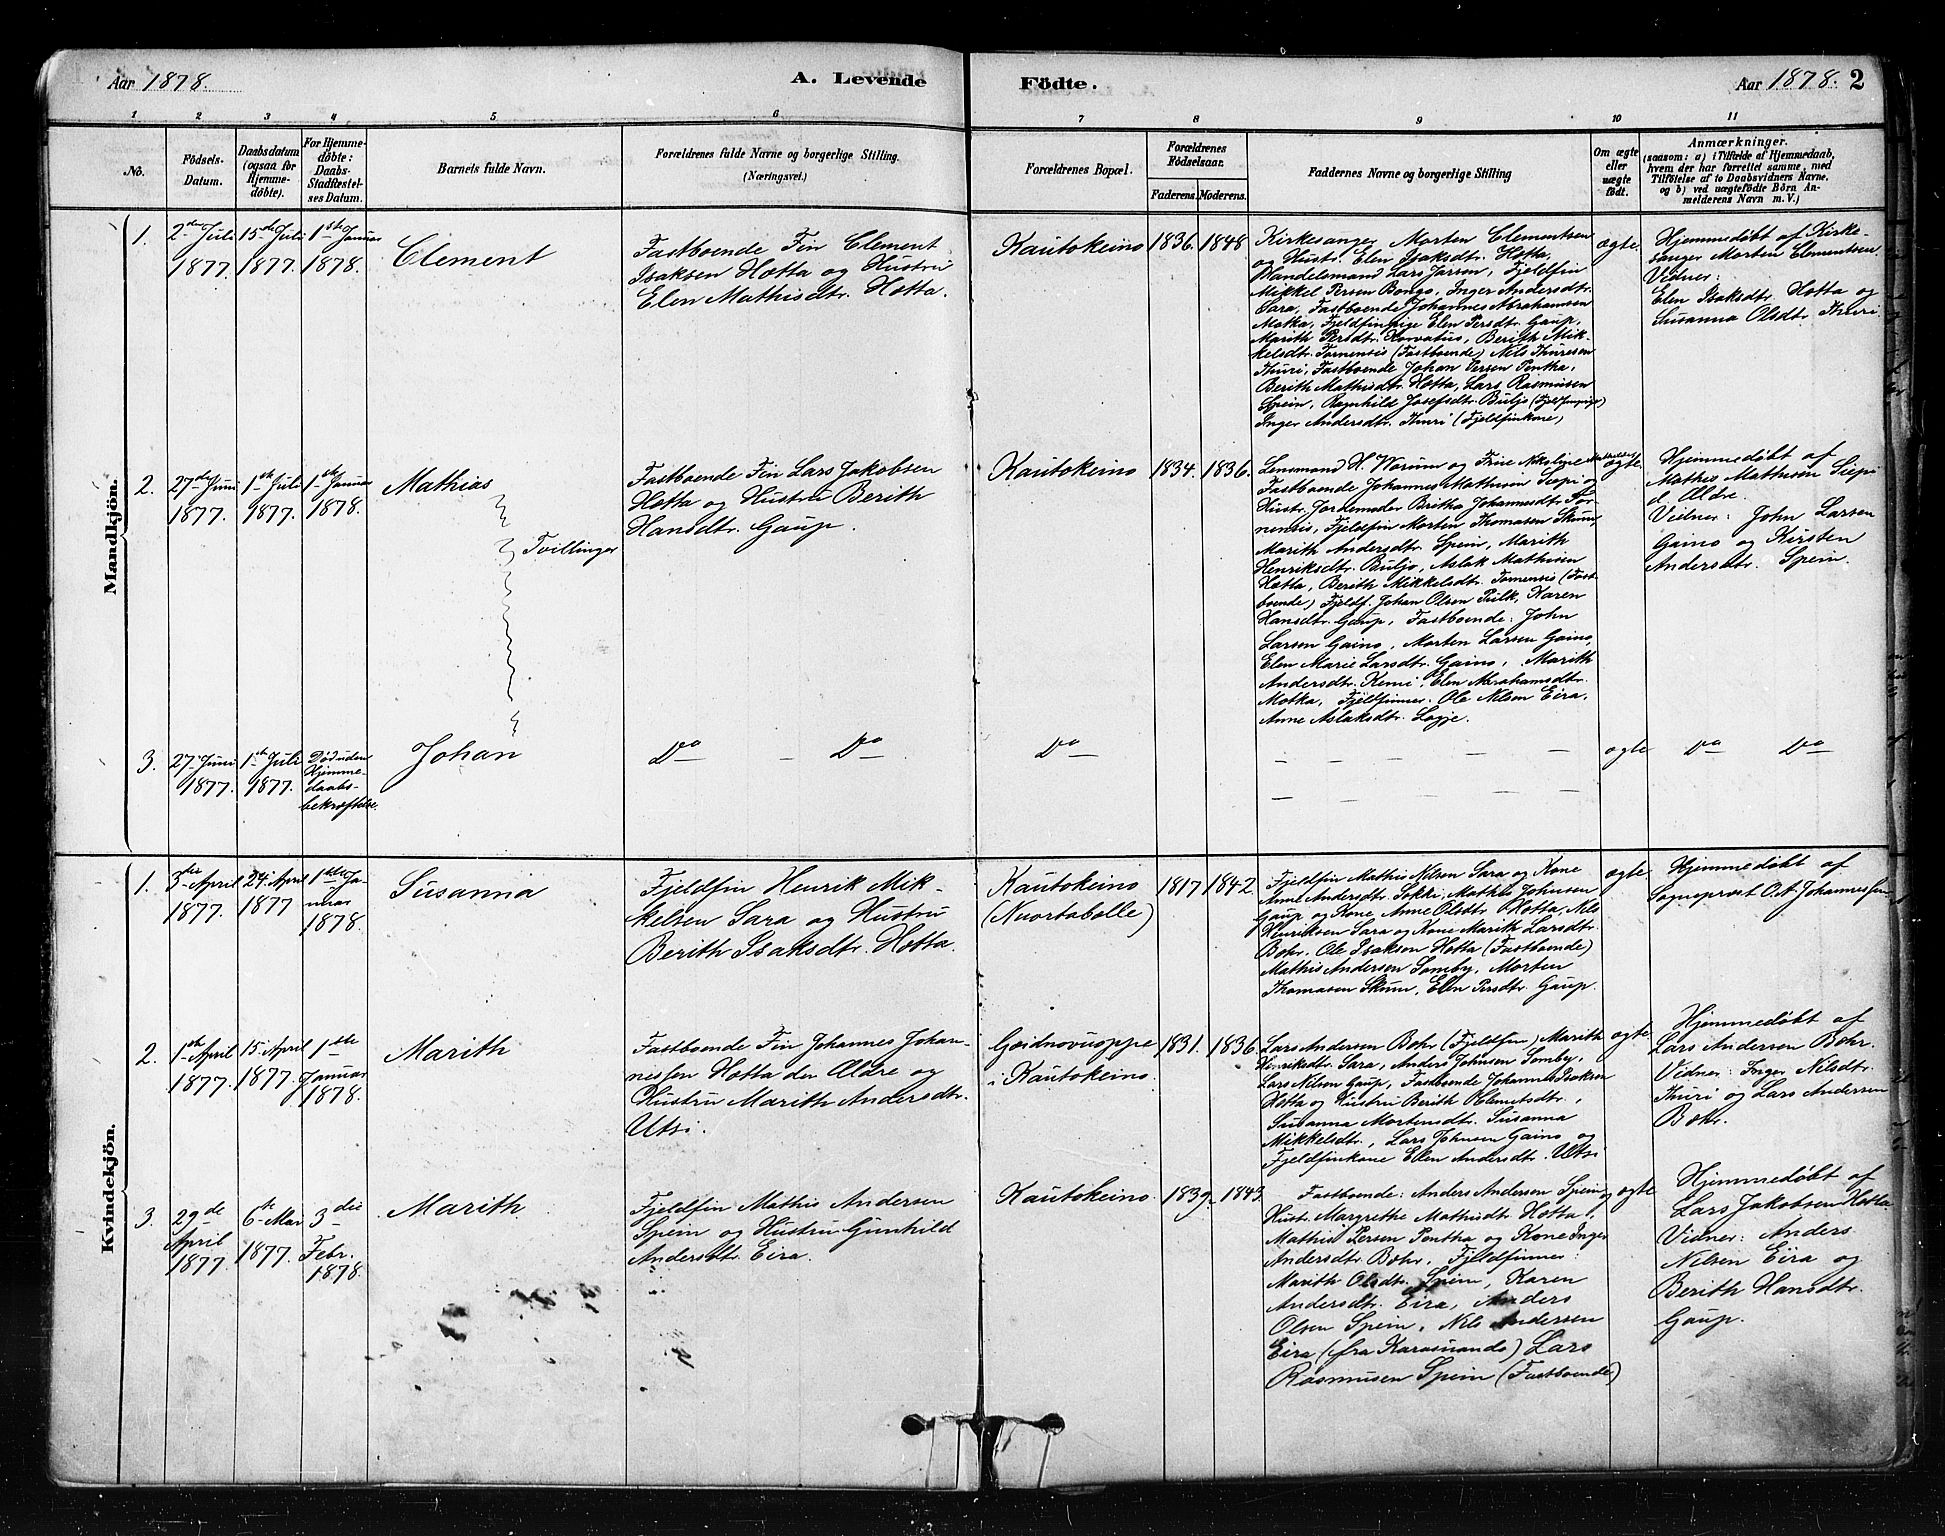 Aar 1878.
A. Levende
Födte.
Aar 1878. 2
1 2 3 4 5 6 7 8 9 10 11
No.
Födsels-
Datum.
Daabsdatum
(ogsaa for
Hjemme-
döbte).
For Hjemme-
döbte:
Daabs-
Stadfæstel-
ses Datum.
Barnets fulde Navn.
Forældrenes fulde Navne og borgerlige Stilling.
(Næringsvei.)
Forældrenes Bopæl.
Forældrenes
Födselsaar.
Faderens. Moderens.
Faddernes Navne og borgerlige Stilling
Om ægte
eller
uægte
födt.
Anmærkninger.
(saasom: a) i Tilfælde af Hjemmedaab,
hvem der har forrettet samme, med
Tilföielse af to Daabsvidners Navne,
og b) ved uægtefödte Börn An-
melderens Navn m. V.)
Mandkjön.
1.
2den Juli
1877.
15de Juli
1877.
1ste Januar
1878.
Clement
Fastboende Fin Clement
Isaksen Hotta og Hustru
Elen Mathisdtr. Hotta.
Kautokeino
1836. 1848.
Kirkesanger Morten Clementsen
og Hustr. Elen Isaksdtr. Hotta,
Handelsmand Lars Jarsen, Fjeldfin
Mikkel Persen Bongo, Inger Andersdtr.
Sara, Fastboende Johannes Abrahamsen
Motka, Fjeldfinpige Elen Persdtr. Gaup,
Marith Persdtr. Horvatus, Berith Mik-
kelsdtr. Tornensis (Fastboende) Nils Thuresen
Thuri, Fastboende Johan Persen Pentha,
Berith Mathisdtr. Hotta, Lars Rasmusen
Spein, Ragnhild Josefsdtr. Buljo (Fjeldfinpige)
Inger Andersdtr. Thuri (Fjeldfinkone)
ægte
Hjemmedøbt af Kirke-
sanger Morten Clementsen.
Vidner:
Elen Isaksdtr. Hotta og
Susanna Olsdtr. Thuri.
2.
27de Juni
1877.
1ste Juli
1877.
1ste Januar
1878.
Mathias
Tvillinger
Fastboende Fin Lars Jakobsen
Hotta og Hustru Berith
Hansdtr. Gaup.
Kautokeino
1834. 1836.
Lensmand H. Worum og Frue
Fastboende Johannes Mathisen Siepi og
Hustr. Jordemoder Beritha Johannesdtr. Tor-
nensis, Fjeldfin Morten Thomasen Skum,
Marith Andersdtr. Spein, Marith
Henriksdtr. Buljo, Aslak Mathisen
Hotta, Berith Mikkelsdtr. Tornensis (Fast-
boende) Fjeldf. Johan Olsen Pulk, Karen
Hansdtr. Gaup, Fastboende: John
Larsen Gaino, Morten Larsen Gaino,
Elen Marie Larsdtr. Gaino, Marith
Andersdtr. Kemi, Elen Abrahamsdtr.
Motka, Fjeldfinner: Ole Nilsen Eira,
Anne Aslaksdtr. Logje.
ægte
Hjemmedøbt af
Mathis Mathisen Siepi
d. Ældre.
Vidner: John Larsen
Gaino og Kirsten
Andersdtr. Spein.
3.
27 Juni
1877.
1ste Juli
1877.
Død uden
Hjemme-
daabs-
bekræftelse.
Johan
Do – Do
Do
– – – – – –
– – – – – –
ægte
Do Do
Kvindekjön.
1.
3die April
1877.
24. April
1877
1ste Ja-
nuar
1878.
Susanna
Fjeldfin Henrik Mik-
kelsen Sara og Hustru
Berith Isaksdtr. Hotta.
Kautokeino
(Nuortabelle)
1817 1842
Fjeldfin Mathis Nilsen Sara og Kone
Anne Andersdtr. Sokki, Mathis Johnsen
Gaup og Kone Anne Olsdtr. Hotta, Nils
Henriksen Sara og Kone Marith Larsdtr.
Bohr, Ole Isaksen Hotta (Fastboende)
Mathis Andersen Somby, Morten
Thomasen Skum, Elen Persdtr. Gaup.
ægte
Hjemmedøbt af
Sogneprest O. A. Johannessen
2.
1ste April
1877.
15 April
1877.
1ste
Januar
1878.
Marith
Fastboende Fin Johannes Johan-
nessen Hotta den Ældre og
Hustru Marith Andersdtr.
Utsi.
Goidnovuoppe
i Kautokeino.
1831. 1836.
Lars Andersen Bohr (Fjeldfin) Marith
Henriksdtr. Sara, Anders Johnsen Somby,
Lars Nilsen Gaup, Fastboende Johannes Isaksen
Hotta og Hustru Berith Klemetsdtr.,
Susanna Mortensdtr. Susanna
Mikkelsdtr., Lars Johnsen Gaino og
Fjeldfinkone Elen Andersdtr. Utsi
ægte
Hjemmedøbt af
Lars Andersen Bohr.
Vidner: Inger Nilsdtr.
Thuri og Lars Andersen
Bohr.
3.
29de
April
1877.
6te Mai
1877.
3die
Febr.
1878.
Marith
Fjeldfin Mathis Andersen
Spein og Hustru Gunhild
Andersdtr. Eira.
Kautokeino.
1839. 1843.
Fastboende: Anders Andersen Spein og
Hust. Margrethe Mathisdtr. Hotta,
Mathis Persen Pentha og Kone Inger
Andersdtr. Bohr, Fjeldfinner:
Marith Olsdtr. Spein, Karen
Andersdtr. Eira, Anders
Olsen Spein, Nils Andersen
Eira (fra Karasuando) Lars
Rasmusen Spein (Fastboende)
ægte
Hjemmedøbt af
Lars Jakobsen Hotta
Vidner: Anders
Nilsen Eira og
Berith Hansdtr.
Gaup.